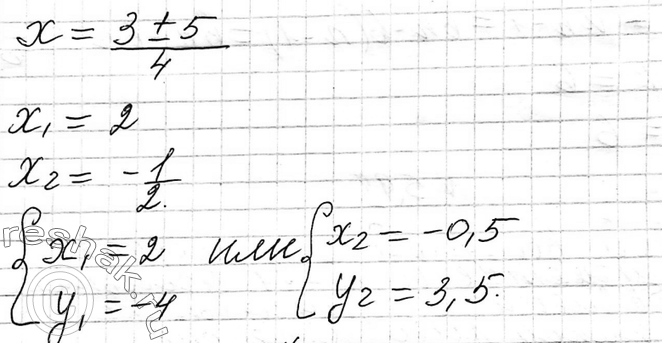 x = (3 ± 5)/4
x₁ = 2
x₂ = -1/2.
{ x₁ = 2 или { x₂ = -0,5
y₁ = -4 y₂ = 3,5.
reshak.ru